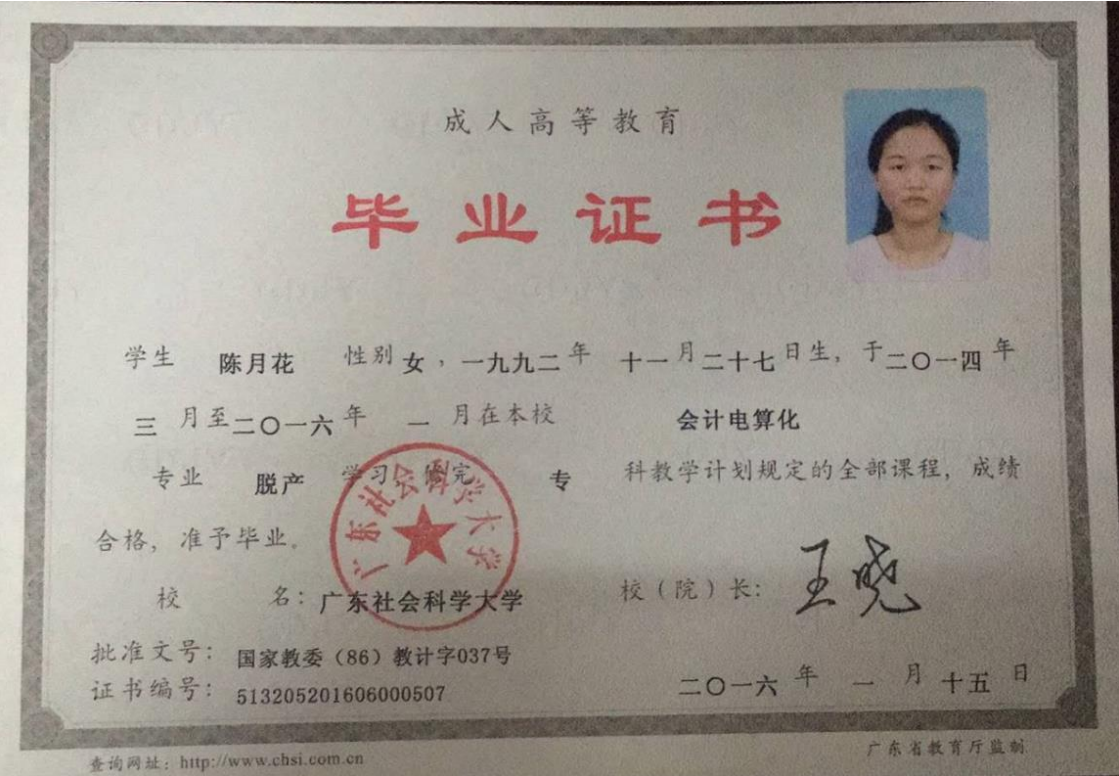 成人高等教育
毕业证书
学生 陈月花 性别 女，一九九二 年 十一 月 二十七 日生，于 二〇一四 年
三 月至 二〇一六 年 一 月在本校 会计电算化
专业 脱产 学习，修完 专 科教学计划规定的全部课程，成绩
合格，准予毕业。
广东社会科学大学
校 名：广东社会科学大学 校（院）长：王晓
批准文号：国家教委（86）教计字037号
证书编号：513205201606000507
二〇一六 年 一 月 十五 日
查询网址：http://www.chsi.com.cn
广东省教育厅监制